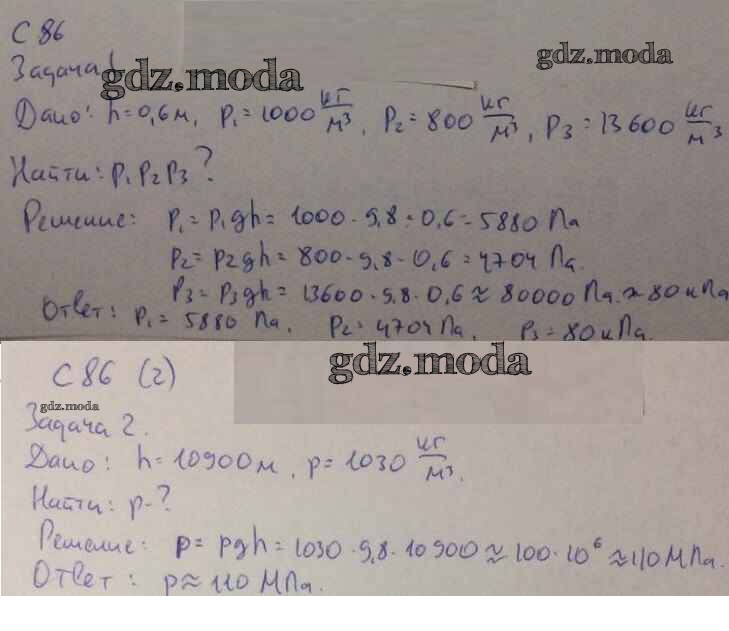 С 86
gdz.moda
Задача 1
gdz.moda
Дано: h=0,6м, ρ₁=1000 кг/м³, ρ₂=800 кг/м³, ρ₃=13600 кг/м³
Найти: p₁ p₂ p₃?
Решение: p₁=ρ₁gh=1000·9,8·0,6=5880 Па
p₂=ρ₂gh=800·9,8·0,6=4704 Па.
p₃=ρ₃gh=13600·9,8·0,6≈80000 Па.≈80кПа
Ответ: p₁=5880 Па, p₂=4704Па, p₃=80кПа.
С 86 (2)
gdz.moda
gdz.moda
Задача 2.
Дано: h=10900м, ρ=1030 кг/м³.
Найти: p-?
Решение: p=ρgh=1030·9,8·10900≈100·10⁶≈110МПа.
Ответ: p≈110 МПа.